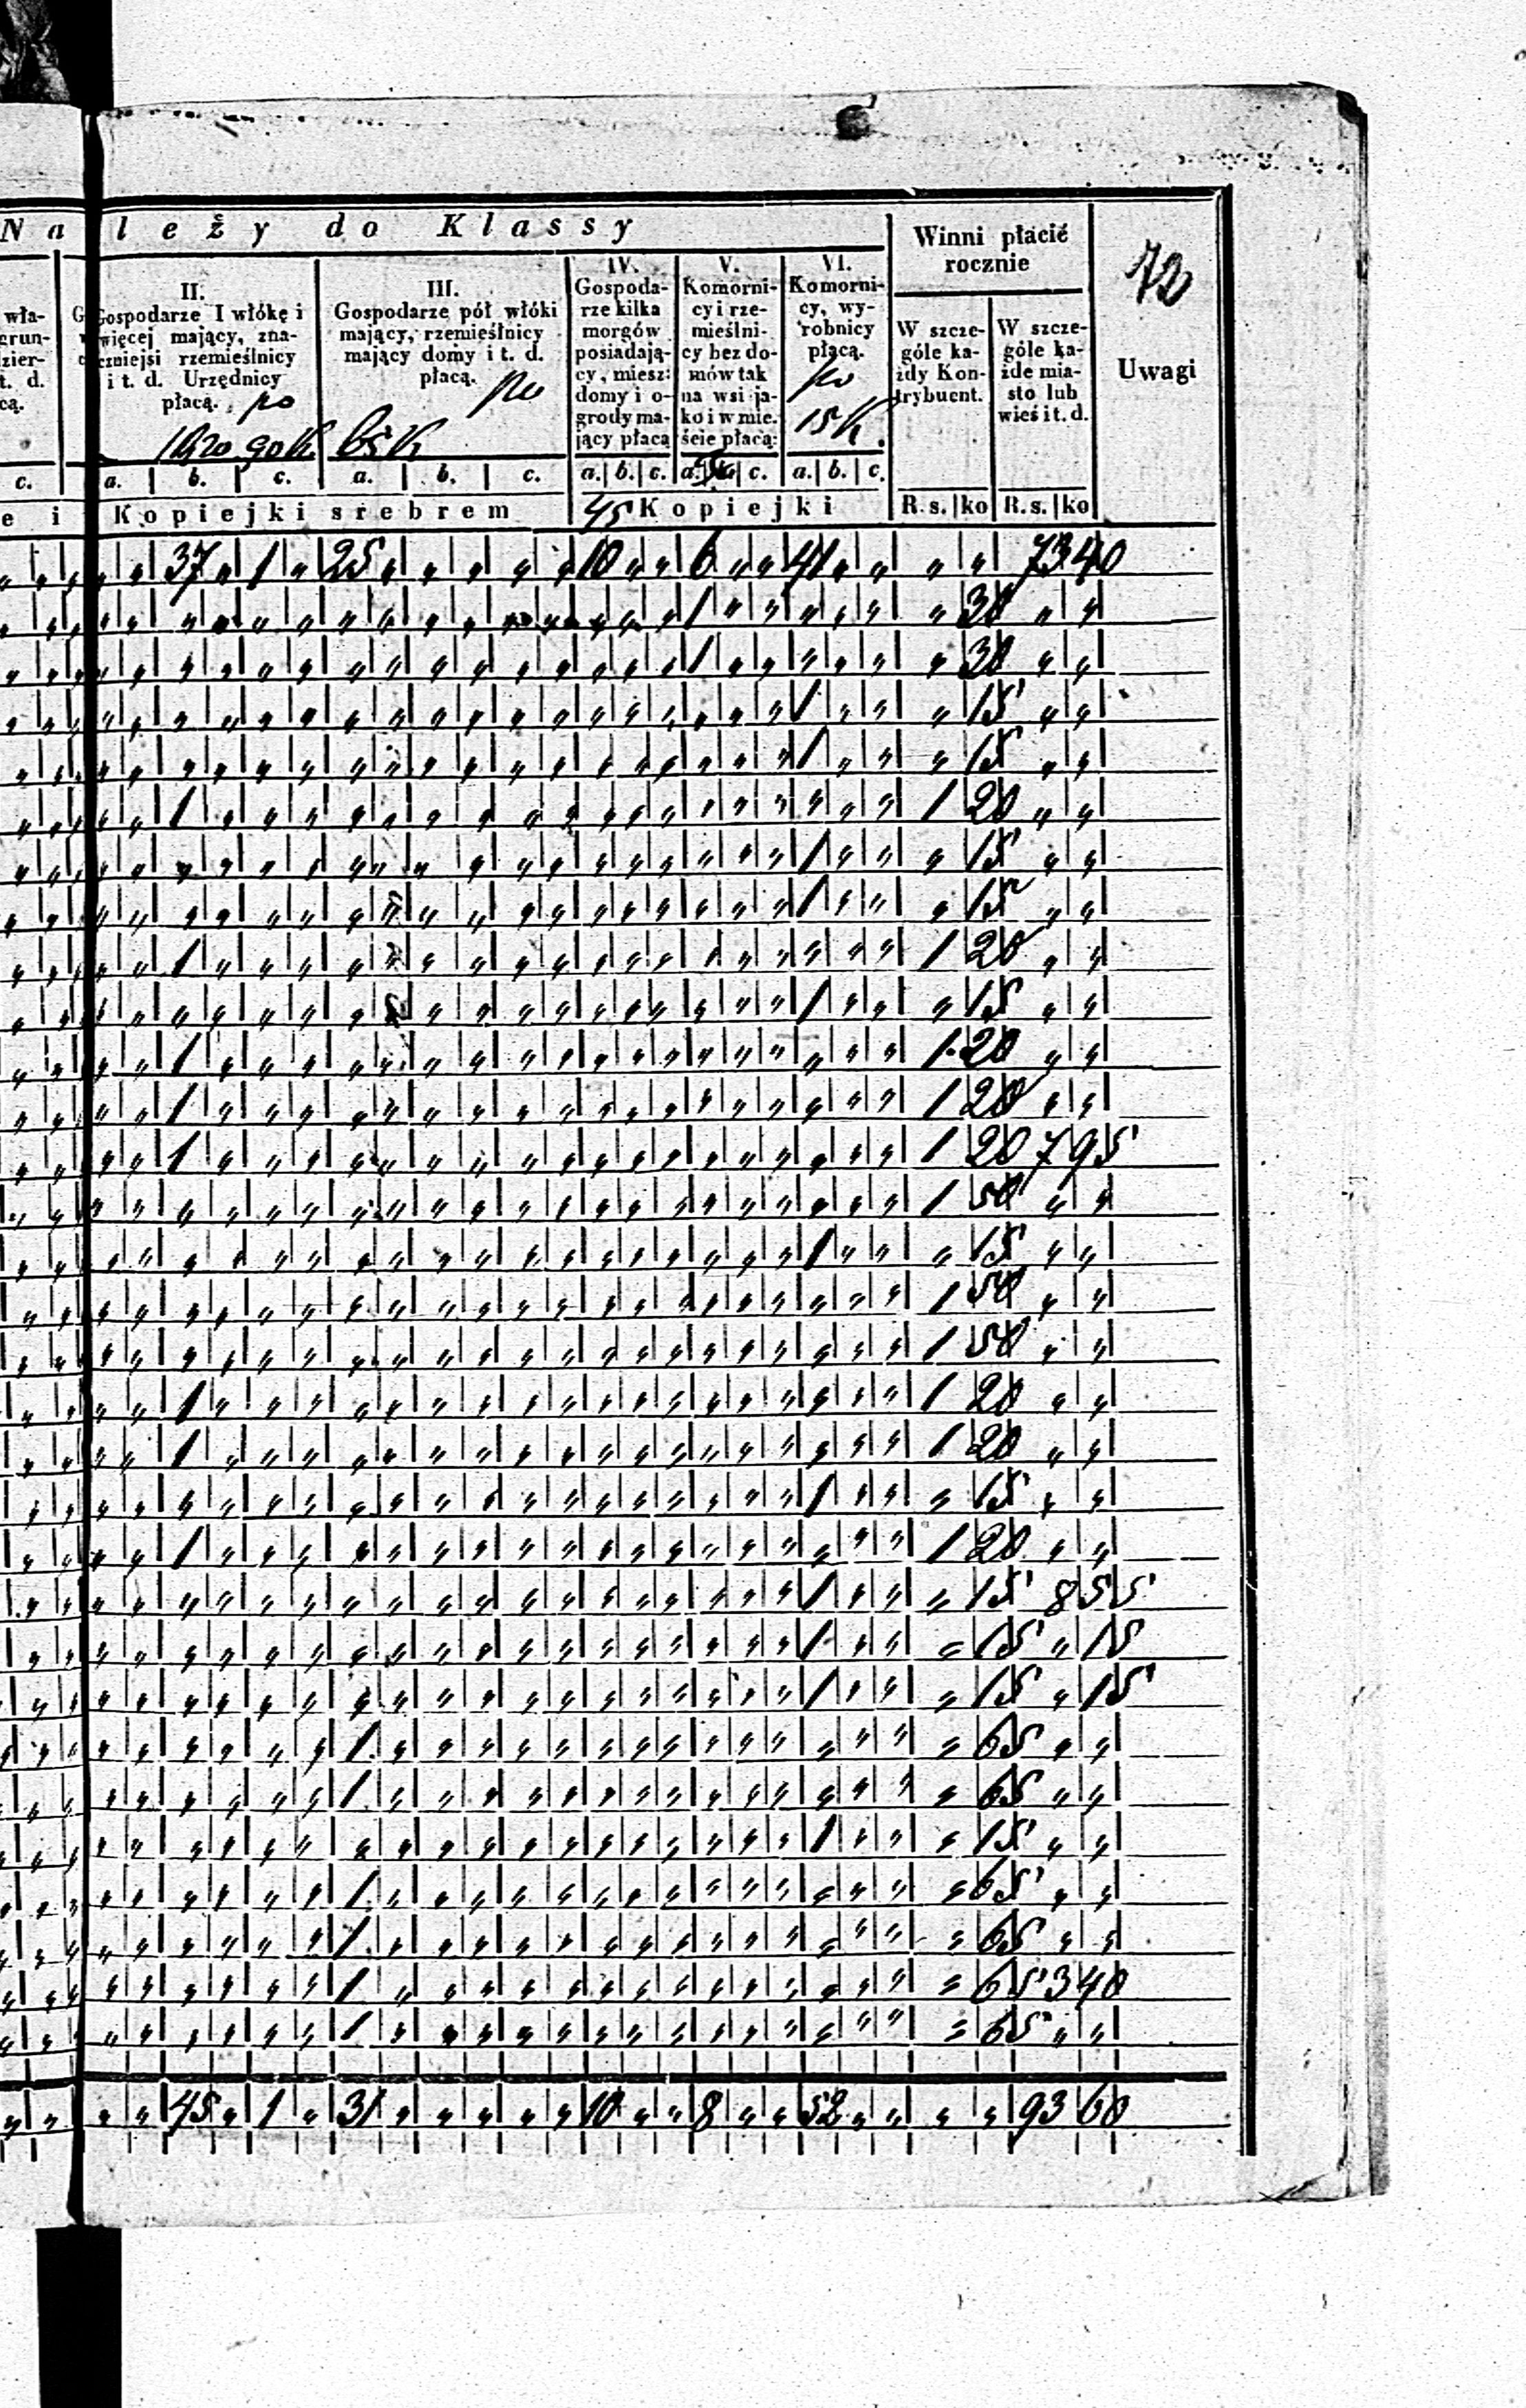 Należy do Klassy
Winni płacić
rocznie
72
II.
Gospodarze I włókę i
więcej mający, zna-
czniejsi rzemieślnicy
i t. d. Urzędnicy
płacą. po
1R20 90K
III.
Gospodarze pół włóki
mający, rzemieślnicy
mający domy i t. d.
płacą. po
65K
IV.
Gospoda-
rze kilka
morgów
posiadają-
cy, miesz:
domy i o-
grody ma-
jący płacą
V.
Komorni-
cy i rze-
mieślni-
cy bez do-
mów tak
na wsi ja-
ko i w mie-
ście płacą:
VI.
Komorni-
cy, wy-
robnicy
płacą.
po
15K.
W szcze-
góle ka-
żdy Kon-
trybuent.
W szcze-
góle ka-
żde mia-
sto lub
wieś i t. d.
Uwagi
wła-
grun-
dzier-
t. d.
cą.
c. a. b. c. a. b. c. a. b. c. a. c. a. b. c.
e i Kopiejki srebrem 45 Kopiejki R. s. ko R. s. ko
" " 37 " 1 " 25 " " " " " 10 " " 6 " " 41 " " " " 73 40
1 " " " " " " 30 " "
1 " " " " " " 30 " "
1 " " " 15 " "
1 " " " 15 " "
1 " " " 1 20 " "
1 " " " 15 " "
1 " " " 15 " "
1 " " " 1 20 " "
1 " " " 15 " "
1 " " " 1 20 " "
1 " " " 1 20 " "
1 " " " 1 20 7 95
" " " 1 50 " "
1 " " " 15 " "
" " " 1 50 " "
" " " 1 50 " "
1 " " " 1 20 " "
1 " " " 1 20 " "
1 " " " 15 " "
1 " " " 1 20 " "
1 " " " 15 8 55
1 " " " 15 " 15
1 " " " 15 " 15
1 " " " 65 " "
1 " " " 65 " "
1 " " " 15 " "
1 " " " 65 " "
1 " " " 65 " "
1 " " " 65 3 40
1 " " " 65 " "
" " 45 " 1 " 31 " " " " " 10 " " 8 " " 52 " " " " 93 60